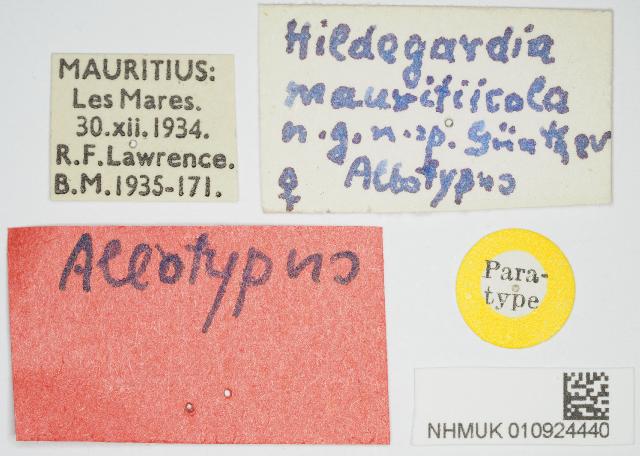 MAURITIUS:
Les Mares.
30.xii.1934.
R.F.Lawrence.
B.M.1935-171.
Hildegardia
mauritiicola
n.g.n.sp. Günther
♀ Allotypus
Allotypus
Para-
type
NHMUK 010924440